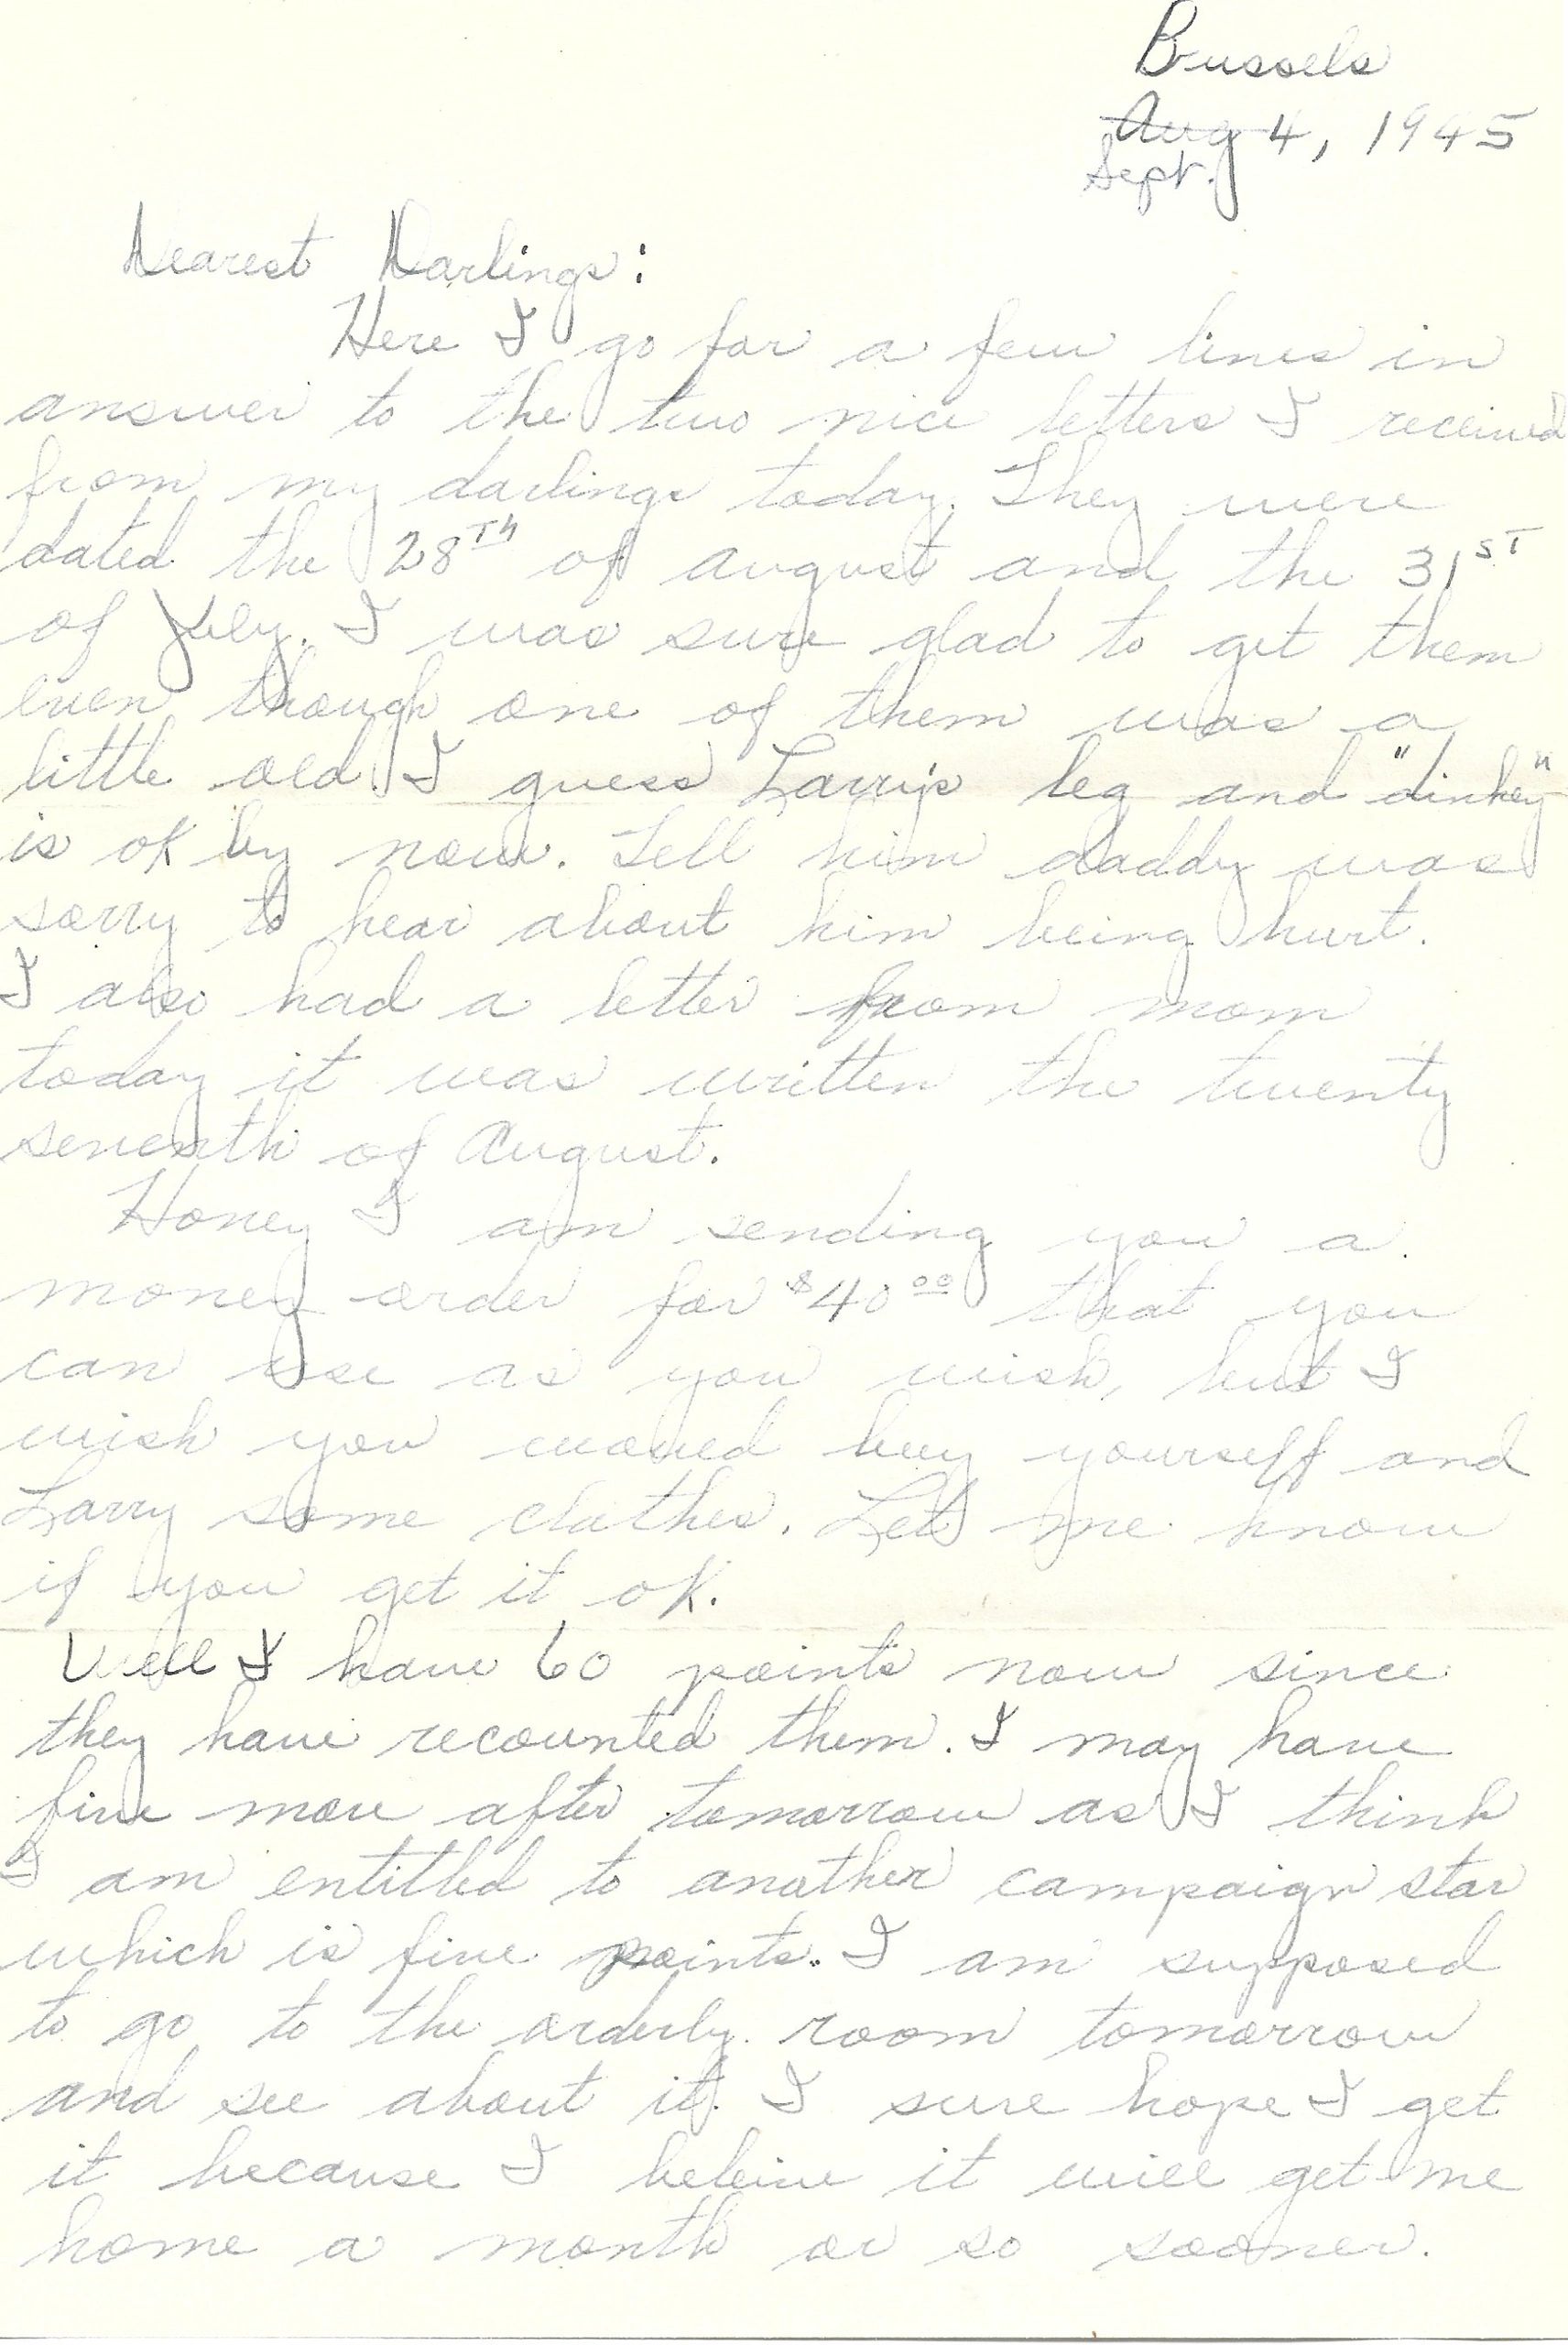 Brussels
Aug 4, 1945
Sept.
Dearest Darlings:
Here I go for a few lines in
answer to the two nice letters I received
from my darlings today. They were
dated the 28TH of august and the 31ST
of July. I was sure glad to get them
even though one of them was a
little old. I guess Larry's leg and "dinkey"
is ok by now. Tell him daddy was
sorry to hear about him being hurt.
I also had a letter from mom
today it was written the twenty
seventh of August.
Honey I am sending you a
money order for $40 00 that you
can use as you wish, but I
wish you would buy yourself and
Larry some clothes. Let me know
if you get it ok.
Well I have 60 points now since
they have recounted them. I may have
five more after tomorrow as I think
I am entitled to another campaign star
which is five points. I am supposed
to go to the orderly room tomorrow
and see about it. I sure hope I get
it because I beleive it will get me
home a month or so sooner.